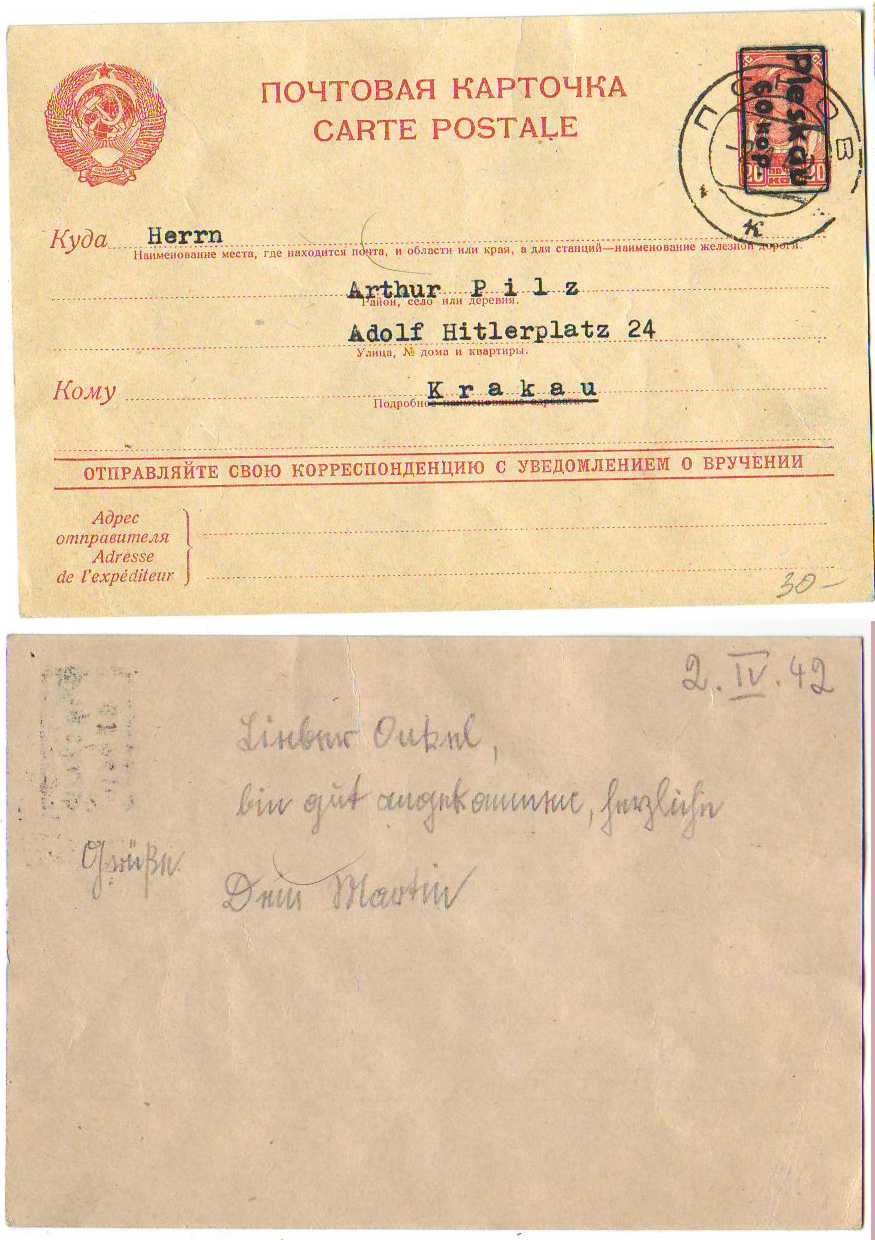 ПОЧТОВАЯ КАРТОЧКА
CARTE POSTALE
Pleskau
60 коп.
20 20
ПСКОВ
Куда Herrn
Наименование места, где находится почта, и области или края, а для станций—наименование железной дороги.
Arthur P i l z
Район, село или деревня.
Adolf Hitlerplatz 24
Улица, № дома и квартиры.
Кому K r a k a u
Подробное наименование адресата
ОТПРАВЛЯЙТЕ СВОЮ КОРРЕСПОНДЕНЦИЮ С УВЕДОМЛЕНИЕМ О ВРУЧЕНИИ
Адрес
отправителя
Adresse
de l'expéditeur
30-
2.IV.42
Lieber Onkel,
bin gut angekommen, herzliche
Grüße.
Dein Martin